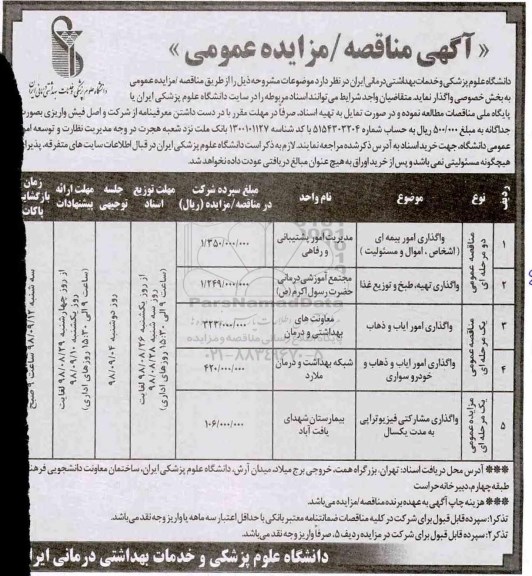 « آگهی مناقصه /مزایده عمومی »
دانشگاه علوم پزشکی و خدمات بهداشتی درمانی ایران
دانشگاه علوم پزشکی وخدمات بهداشتی درمانی ایران در نظر دارد موضوعات مشروحه ذیل را از طریق مناقصه /مزایده عمومی
به بخش خصوصی واگذار نماید. متقاضیان واجد شرایط می توانند اسناد مربوطه را در سایت دانشگاه علوم پزشکی ایران یا
پایگاه ملی مناقصات مطالعه نموده و در صورت تمایل به تهیه اسناد، صرفاً در مهلت مقرر با در دست داشتن معرفینامه از شرکت و اصل فیش واریزی بصورت
جداگانه به مبلغ ۵۰۰/۰۰۰ ریال به حساب شماره ۵۱۵۴۳۰۳۲۰۴ با کد شناسه ۱۳۰۰۱۰۱۱۲۷ بانک ملت نزد شعبه هجرت در وجه مدیریت نظارت و توسعه امور
عمومی دانشگاه، جهت خرید اسناد به آدرس ذکر شده مراجعه نمایند. لازم به ذکر است دانشگاه علوم پزشکی ایران در قبال اطلاعات سایت های متفرقه،
هیچگونه مسئولیتی نمی باشد و پس از خرید اوراق به هیچ عنوان مبالغ دریافتی عودت داده نخواهد شد.
ردیف نوع موضوع نام واحد مبلغ سپرده شرکت در مناقصه/مزایده (ریال) مهلت توزیع اسناد جلسه توجیهی مهلت ارائه پیشنهادات زمان بازگشایی پاکات
۱ مناقصه عمومی دو مرحله ای واگذاری امور بیمه ای ( اشخاص ، اموال و مسئولیت ) مدیریت امور پشتیبانی و رفاهی ۱/۳۵۰/۰۰۰/۰۰۰
۲ واگذاری تهیه، طبخ و توزیع غذا مجتمع آموزشی درمانی حضرت رسول اکرم (ص) ۱/۲۴۹/۰۰۰/۰۰۰
۳ مناقصه عمومی یک مرحله ای واگذاری امور ایاب و ذهاب معاونت های بهداشتی و درمان ۳۲۳/۰۰۰/۰۰۰
۴ واگذاری امور ایاب و ذهاب و خودرو سواری شبکه بهداشت و درمان ملارد ۴۲۰/۰۰۰/۰۰۰
۵ مزایده عمومی یک مرحله ای واگذاری مشارکتی فیزیوتراپی به مدت یکسال بیمارستان شهدای یافت آباد ۱۰۶/۰۰۰/۰۰۰
از روز یکشنبه ۹۸/۰۸/۲۶ لغایت روز سه شنبه ۹۸/۰۸/۲۸ (ساعت ۹ الی ۱۵:۳۰ روزهای اداری)
روز دوشنبه ۹۸/۰۹/۰۴
از روز چهارشنبه ۹۸/۰۸/۲۹ لغایت روز یکشنبه ۹۸/۰۹/۱۰ (ساعت ۹ الی ۱۵:۳۰ روزهای اداری)
سه شنبه ۹۸/۰۹/۱۲ ساعت ۹ صبح
ParsNamadData
۰۲۱-۸۸۳۴۹۶۷۰-۵
*** آدرس محل دریافت اسناد: تهران، بزرگراه همت، خروجی برج میلاد، میدان آرش، دانشگاه علوم پزشکی ایران، ساختمان معاونت دانشجویی
طبقه چهارم، دبیرخانه حراست
*** هزینه چاپ آگهی به عهده برنده مناقصه/مزایده می باشد.
تذکر۱: سپرده قابل قبول برای شرکت در کلیه مناقصات ضمانتنامه معتبر بانکی با حداقل اعتبار سه ماهه یا واریز وجه نقد می باشد.
تذکر۲: سپرده قابل قبول برای شرکت در مزایده ردیف ۵، صرفاً واریز وجه نقد می باشد.
دانشگاه علوم پزشکی و خدمات بهداشتی درمانی ایران